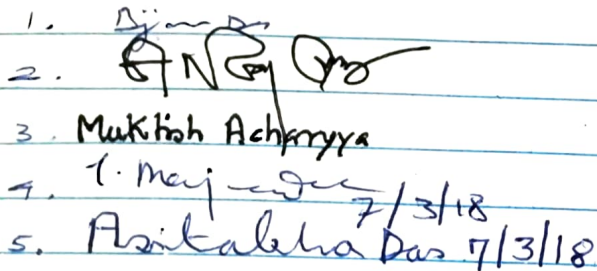 1. Bijan Das
2.
3. Muktish Acharyya
4. T. Majumder 7/3/18
5. Asitabha Das 7/3/18